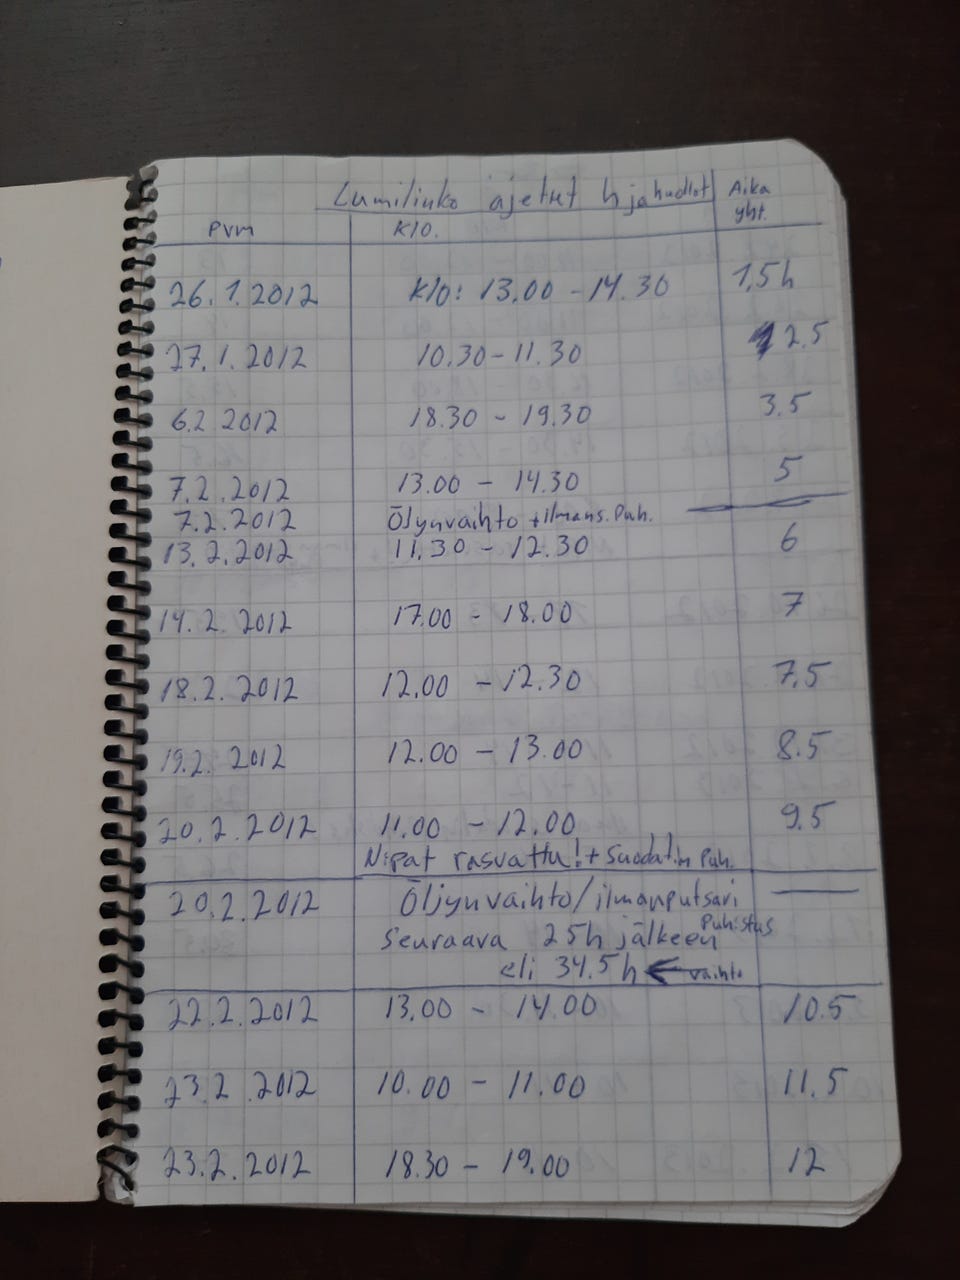 Lumilinko ajetut h ja huollot Aika yht.
PVM KLO.
26.1.2012 Klo: 13.00 - 14.30 1,5h
27.1.2012 10.30 - 11.30 2.5
6.2 2012 18.30 - 19.30 3.5
7.2.2012 13.00 - 14.30 5
7.2.2012 Öljynvaihto + ilmans. Puh.
13.2.2012 11.30 - 12.30 6
14.2.2012 17.00 - 18.00 7
18.2.2012 12.00 - 12.30 7,5
19.2.2012 12.00 - 13.00 8.5
20.2.2012 11.00 - 12.00 9,5
Nipat rasvattu! + Suodatin Puh.
20.2.2012 Öljynvaihto/ilmanputsari
Puhistus
Seuraava 25h jälkeen
eli 34.5h ← vaihto
22.2.2012 13.00 - 14.00 10.5
23.2.2012 10.00 - 11.00 11.5
23.2.2012 18.30 - 19.00 12